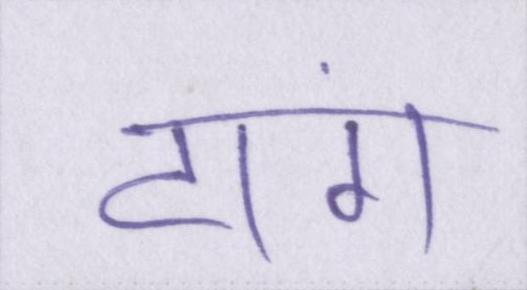 टांग